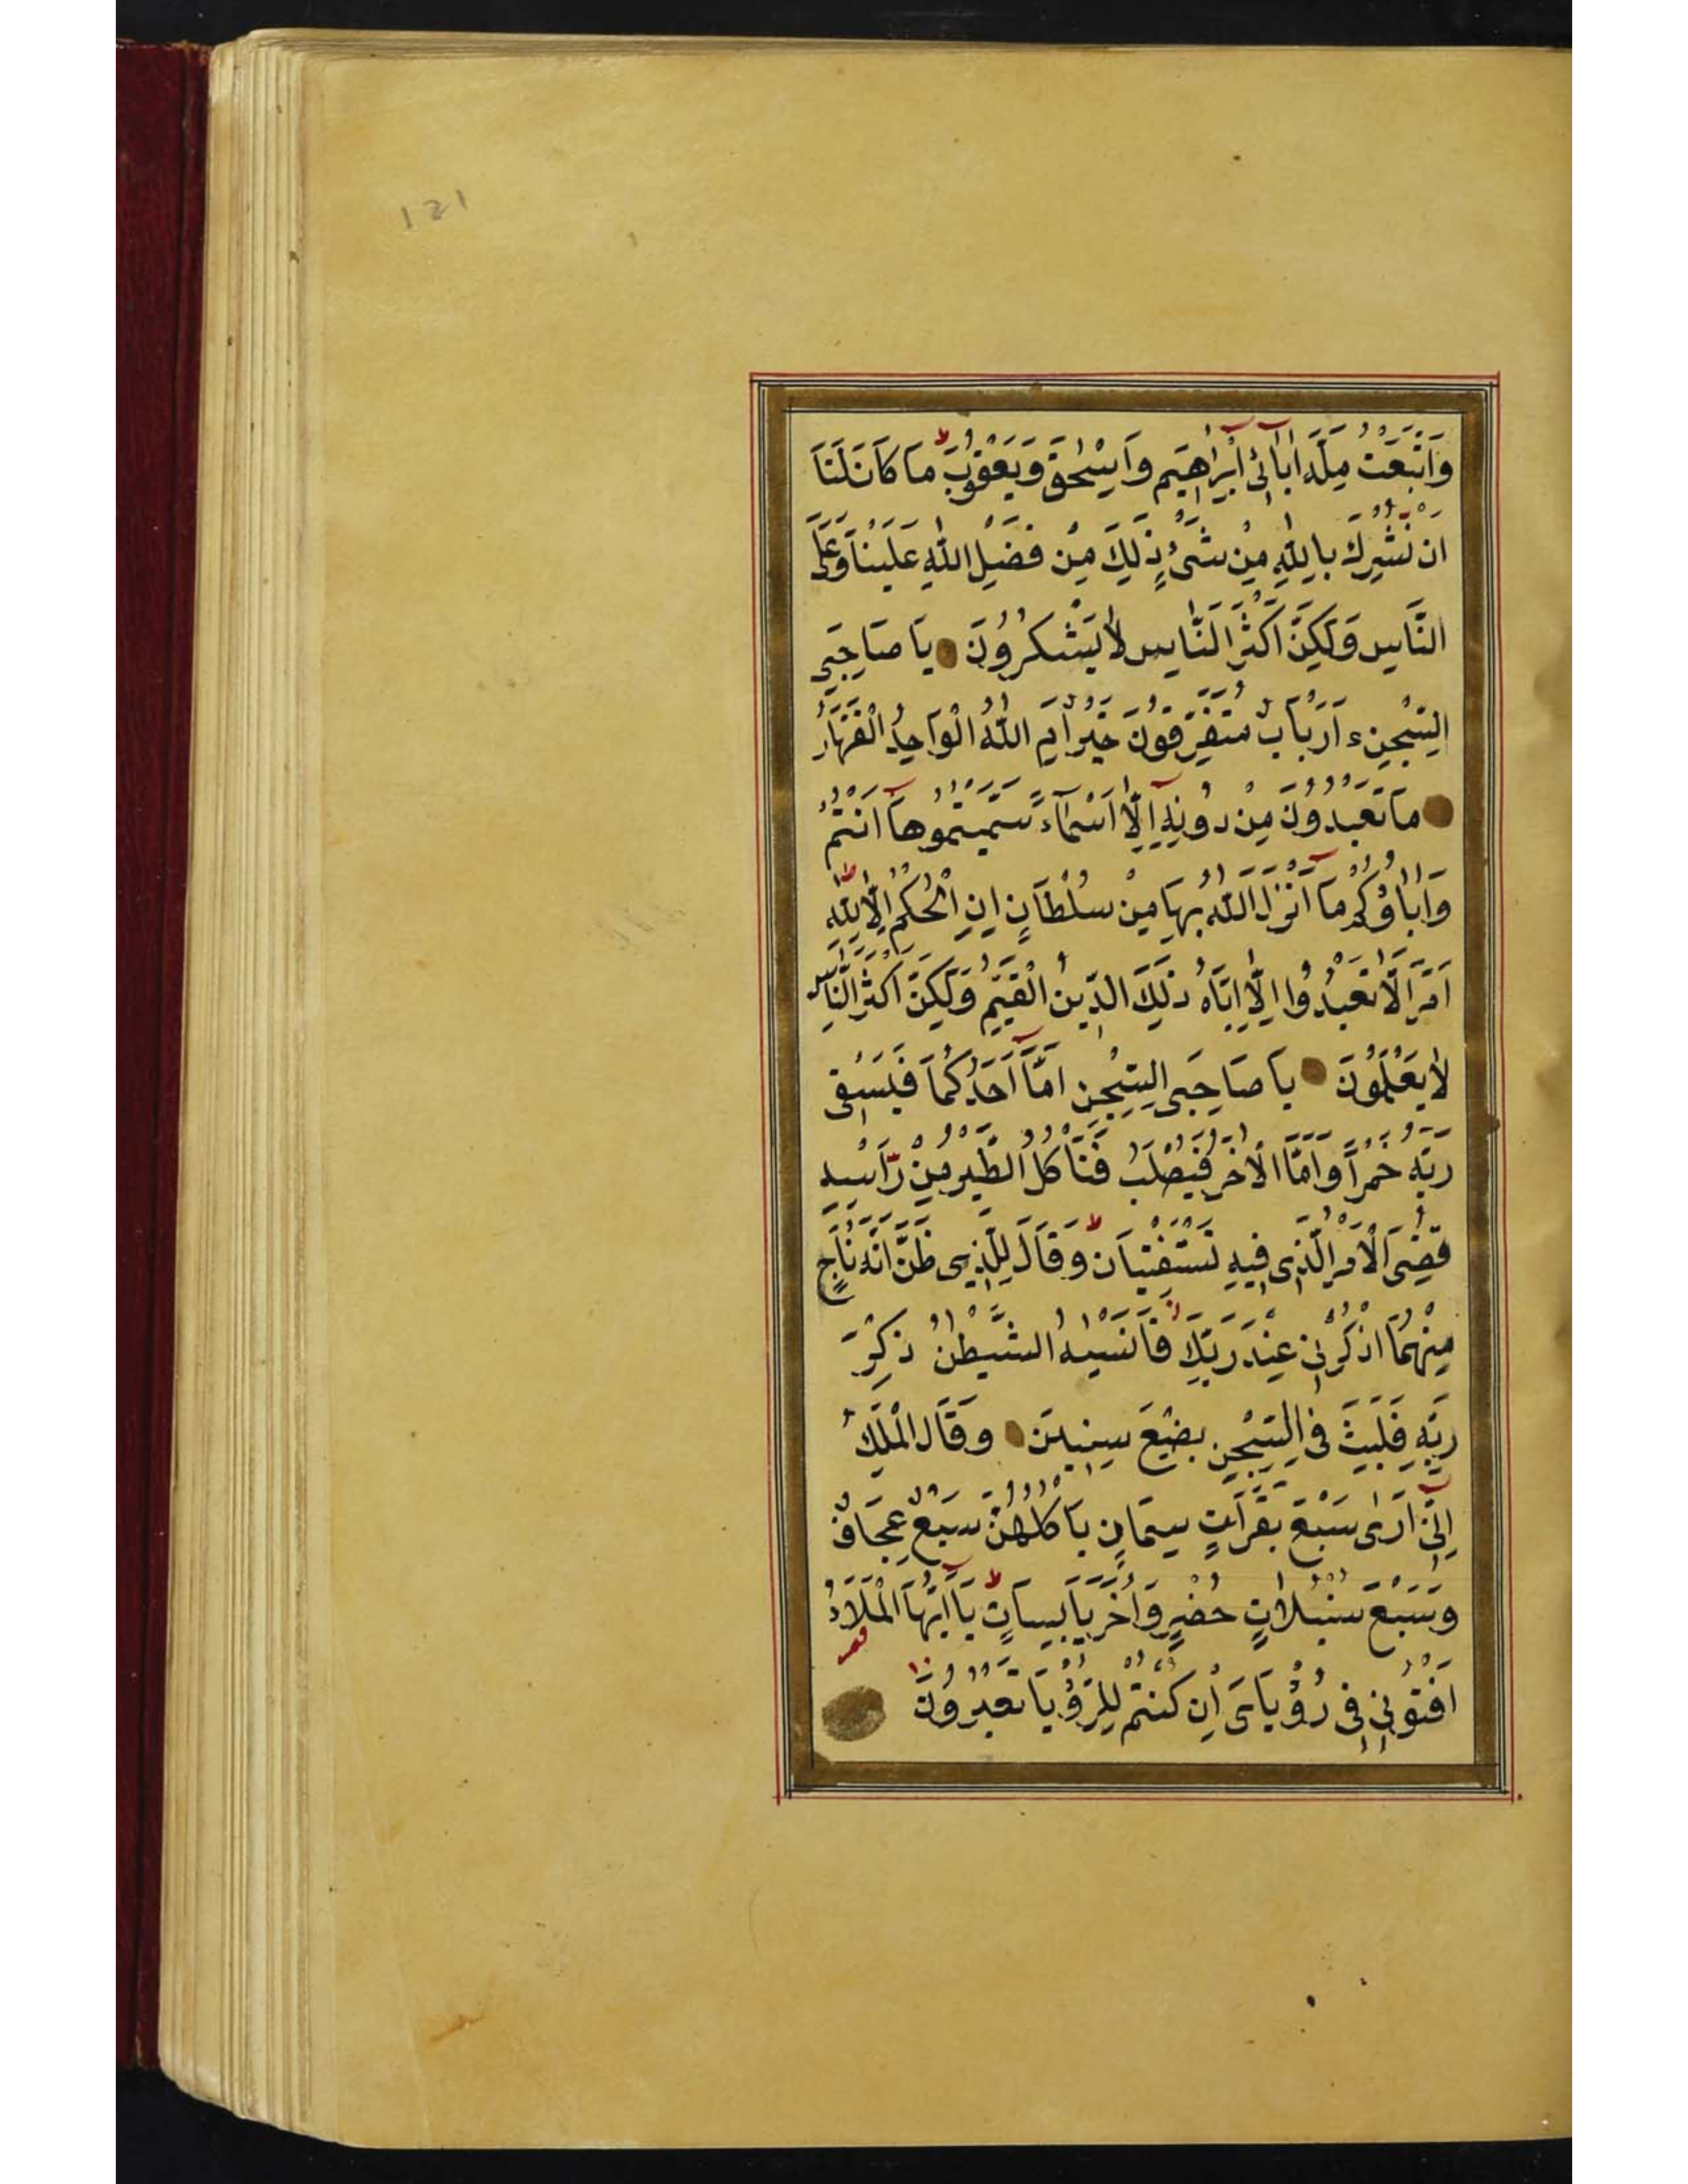 121
وَاتَّبَعْتُ مِلَّةَ اٰبَآئِٓى اِبْرٰهِيمَ وَاِسْحٰقَ وَيَعْقُوبَ ط مَا كَانَ لَنَا
اَنْ نُشْرِكَ بِاللّٰهِ مِنْ شَىْءٍ ذٰلِكَ مِنْ فَضْلِ اللّٰهِ عَلَيْنَا وَعَلَى
النَّاسِ وَلٰكِنَّ اَكْثَرَ النَّاسِ لَا يَشْكُرُونَ يَا صَاحِبَىِ
السِّجْنِ ءَاَرْبَابٌ مُتَفَرِّقُونَ خَيْرٌ اَمِ اللّٰهُ الْوَاحِدُ الْقَهَّارُ
مَا تَعْبُدُونَ مِنْ دُونِهٖٓ اِلَّٓا اَسْمَآءً سَمَّيْتُمُوهَٓا اَنْتُمْ
وَاٰبَاؤُكُمْ مَٓا اَنْزَلَ اللّٰهُ بِهَا مِنْ سُلْطَانٍ اِنِ الْحُكْمُ اِلَّا لِلّٰهِ ط
اَمَرَ اَلَّا تَعْبُدُوا اِلَّا اِيَّاهُ ذٰلِكَ الدِّينُ الْقَيِّمُ وَلٰكِنَّ اَكْثَرَ النَّاسِ
لَا يَعْلَمُونَ يَا صَاحِبَىِ السِّجْنِ اَمَّٓا اَحَدُكُمَا فَيَسْقِى
رَبَّهُ خَمْرًا وَاَمَّا الْاٰخَرُ فَيُصْلَبُ فَتَأْكُلُ الطَّيْرُ مِنْ رَأْسِهِ
قُضِىَ الْاَمْرُ الَّذِى فِيهِ تَسْتَفْتِيَانِ ط وَقَالَ لِلَّذِى ظَنَّ اَنَّهُ نَاجٍ
مِنْهُمَا اذْكُرْنِى عِنْدَ رَبِّكَ فَاَنْسٰيهُ الشَّيْطٰنُ ذِكْرَ
رَبِّهِ فَلَبِثَ فِى السِّجْنِ بِضْعَ سِنِينَ وَقَالَ الْمَلِكُ
اِنِّٓى اَرٰى سَبْعَ بَقَرَاتٍ سِمَانٍ يَأْكُلُهُنَّ سَبْعٌ عِجَافٌ
وَسَبْعَ سُنْبُلَاتٍ خُضْرٍ وَاُخَرَ يَابِسَاتٍ ط يَٓا اَيُّهَا الْمَلَاُ
اَفْتُونِى فِى رُؤْيَاىَ اِنْ كُنْتُمْ لِلرُّؤْيَا تَعْبُرُونَ